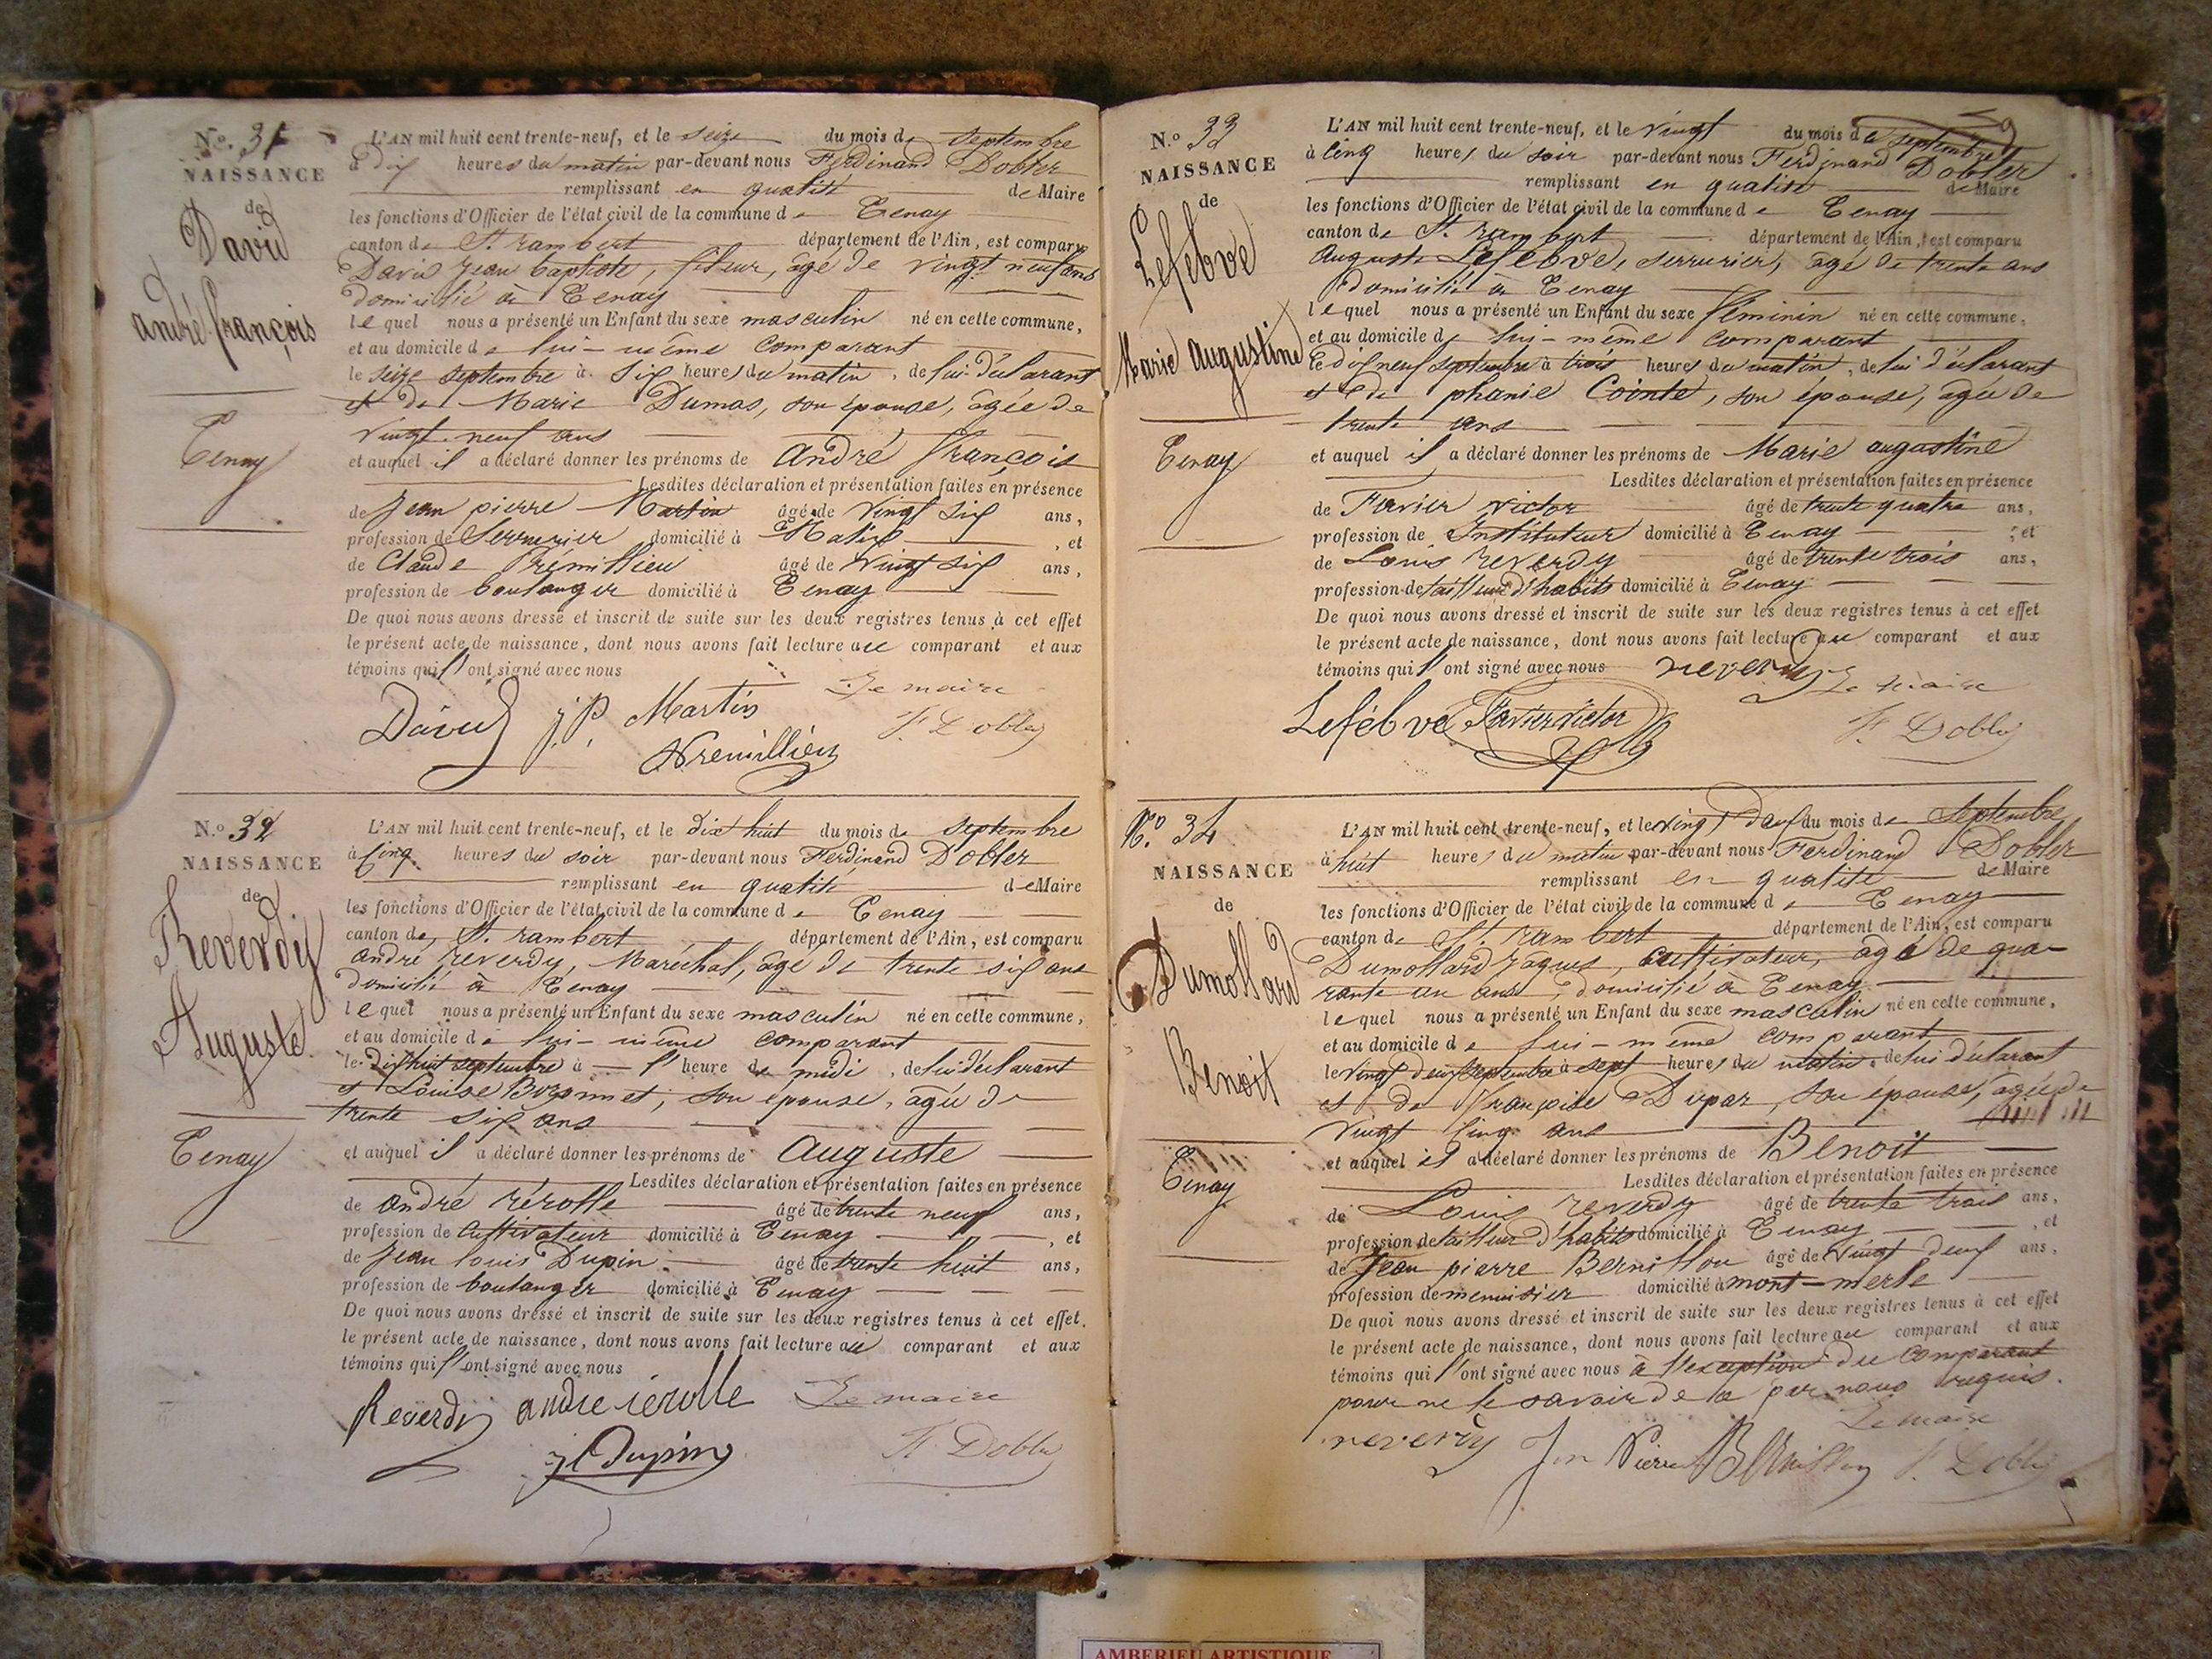 N.o 31
NAISSANCE
de
David
andré françois
Tenay
L'AN mil huit cent trente-neuf, et le seize du mois de septembre
à dix heures du matin par-devant nous Ferdinand Dobler
remplissant en qualité de Maire
les fonctions d'Officier de l'état civil de la commune de Tenay
canton de St. rambert département de l'Ain, est comparu
David jean baptiste, fileur, âgé de vingt neuf ans
domicilié à Tenay
lequel nous a présenté un Enfant du sexe masculin né en cette commune,
et au domicile de lui-même comparant
le seize septembre à six heures du matin, de lui déclarant
et de Marie Dumas, son épouse, âgée de
vingt-neuf ans
et auquel il a déclaré donner les prénoms de andré françois
Lesdites déclaration et présentation faites en présence
de jean pierre Martin âgé de vingt six ans,
profession de Serrurier domicilié à , et
de Claude Prémillieu âgé de vingt six ans,
profession de boulanger domicilié à Tenay
De quoi nous avons dressé et inscrit de suite sur les deux registres tenus à cet effet
le présent acte de naissance, dont nous avons fait lecture au comparant et aux
témoins qui l'ont signé avec nous
Le maire
David J. P. Martin F. Dobler
Premillieu
N.o 32
NAISSANCE
de
Reverdy
Auguste
Tenay
L'AN mil huit cent trente-neuf, et le dix huit du mois de septembre
à cinq heures du soir par-devant nous Ferdinand Dobler
remplissant en qualité de Maire
les fonctions d'Officier de l'état civil de la commune de Tenay
canton de St. rambert département de l'Ain, est comparu
andré reverdy, Maréchal, âgé de trente six ans
domicilié à Tenay
lequel nous a présenté un Enfant du sexe masculin né en cette commune,
et au domicile de lui-même comparant
le dix huit septembre à l'heure de midi, de lui déclarant
et Louise Bozonnet, son épouse, âgée de
trente six ans
et auquel il a déclaré donner les prénoms de auguste
Lesdites déclaration et présentation faites en présence
de andré rérolle âgé de trente neuf ans,
profession de Cultivateur domicilié à Tenay , et
de jean louis Dupin âgé de trente huit ans,
profession de boulanger domicilié à Tenay
De quoi nous avons dressé et inscrit de suite sur les deux registres tenus à cet effet,
le présent acte de naissance, dont nous avons fait lecture au comparant et aux
témoins qui l'ont signé avec nous
Reverdy andre rerolle Le maire
jl Dupin F. Dobler
N.o 33
NAISSANCE
de
Lefebvre
Marie augustine
Tenay
L'AN mil huit cent trente-neuf, et le vingt du mois de septembre
à cinq heures du soir par-devant nous Ferdinand Dobler
remplissant en qualité de Maire
les fonctions d'Officier de l'état civil de la commune de Tenay
canton de St. rambert département de l'Ain, est comparu
auguste Lefebvre, serrurier, âgé de trente ans
domicilié à Tenay
lequel nous a présenté un Enfant du sexe féminin né en cette commune,
et au domicile de lui-même comparant
le dix neuf septembre à trois heures du matin, de lui déclarant
et de phanie Cointe, son épouse, âgée de
trente ans
et auquel il a déclaré donner les prénoms de Marie augustine
Lesdites déclaration et présentation faites en présence
de Favier victor âgé de trente quatre ans,
profession de Instituteur domicilié à Tenay , et
de Louis reverdy âgé de trente trois ans,
profession de tailleur d'habits domicilié à Tenay
De quoi nous avons dressé et inscrit de suite sur les deux registres tenus à cet effet
le présent acte de naissance, dont nous avons fait lecture au comparant et aux
témoins qui l'ont signé avec nous reverdy Le maire
Lefébvre Favier victor F. Dobler
N.o 34
NAISSANCE
de
Dumollard
Benoit
Tenay
L'AN mil huit cent trente-neuf, et le vingt deux du mois de Septembre
à huit heures du matin par-devant nous Ferdinand Dobler
remplissant en qualité de Maire
les fonctions d'Officier de l'état civil de la commune de Tenay
canton de St. rambert département de l'Ain, est comparu
Dumollard jaques, cultivateur, agé de qua-
rante un ans, domicilié à Tenay
lequel nous a présenté un Enfant du sexe masculin né en cette commune,
et au domicile de lui-même comparant
le vingt deux septembre à sept heures du matin, de lui déclarant
et de françoise Dupar, son épouse, âgée de
vingt cinq ans
et auquel il a déclaré donner les prénoms de Benoit
Lesdites déclaration et présentation faites en présence
de Louis reverdy âgé de trente trois ans,
profession de tailleur d'habits domicilié à Tenay , et
de jean pierre Bernillon âgé de vingt deux ans,
profession de menuisier domicilié à mont-merle
De quoi nous avons dressé et inscrit de suite sur les deux registres tenus à cet effet
le présent acte de naissance, dont nous avons fait lecture au comparant et aux
témoins qui l'ont signé avec nous à l'exception du comparant
pour ne le savoir de ce par nous requis.
Le maire
reverdy Jen Pierre Bernillon F. Dobler
AMBERIEU ARTISTIQUE